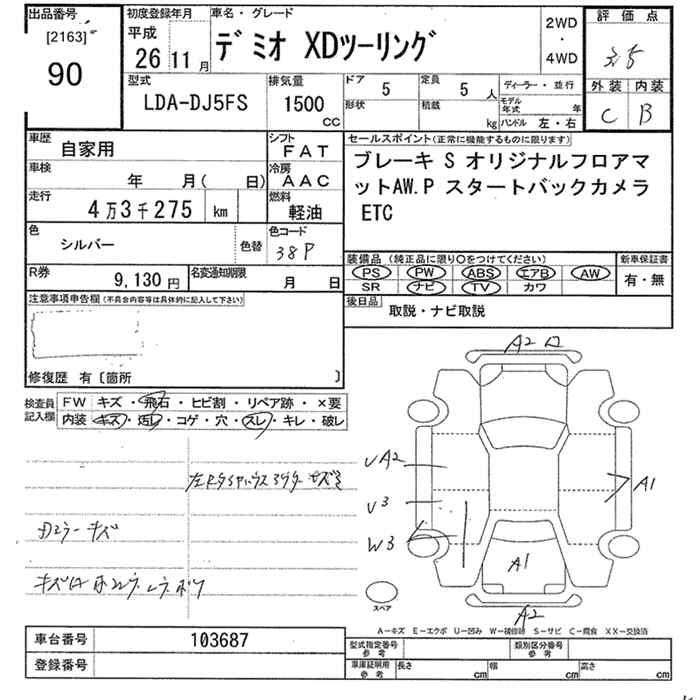 出品番号
[2163]
90
初度登録年月
平成
26 11月
車名・グレード
デミオ XDツーリング
2WD
・
4WD
評価点
外装 内装
C B
型式
LDA-DJ5FS
排気量
1500
CC
ドア
5
形状
定員
5 人
積載
kg
ディーラー・並行
モデル
年式
年
ハンドル 左・右
車歴
自家用
シフト
FAT
車検
年 月( 日)
冷房
AAC
走行
4万3千275 km
燃料
軽油
色
シルバー
色替
色コード
38P
R券
9,130 円
名変通知期限
月 日
セールスポイント(正常に機能するものに限ります)
ブレーキ S オリジナルフロアマ
ットAW.P スタートバックカメラ
ETC
装備品 (純正品に限り○をつけてください)
PS PW ABS エアB AW
SR ナビ TV カワ
新車保証書
有・無
後日品
取説・ナビ取説
注意事項申告欄(不具合内容等は具体的に記入して下さい)
修復歴 有〔箇所 〕
検査員
記入欄
FW キズ・飛石・ヒビ割・リペア跡・×要
内装 キズ・汚レ・コゲ・穴・スレ・キレ・破レ
A2
UA2
U3
W3
A1
A1
A2
スペア
A-キズ E-エクボ U-凹み W-補修跡 S-サビ C-腐食 XX-交換済
車台番号
103687
登録番号
型式指定番号
参考
類別区分番号
参考
車庫証明用
参考
長さ cm 幅 cm 高さ cm